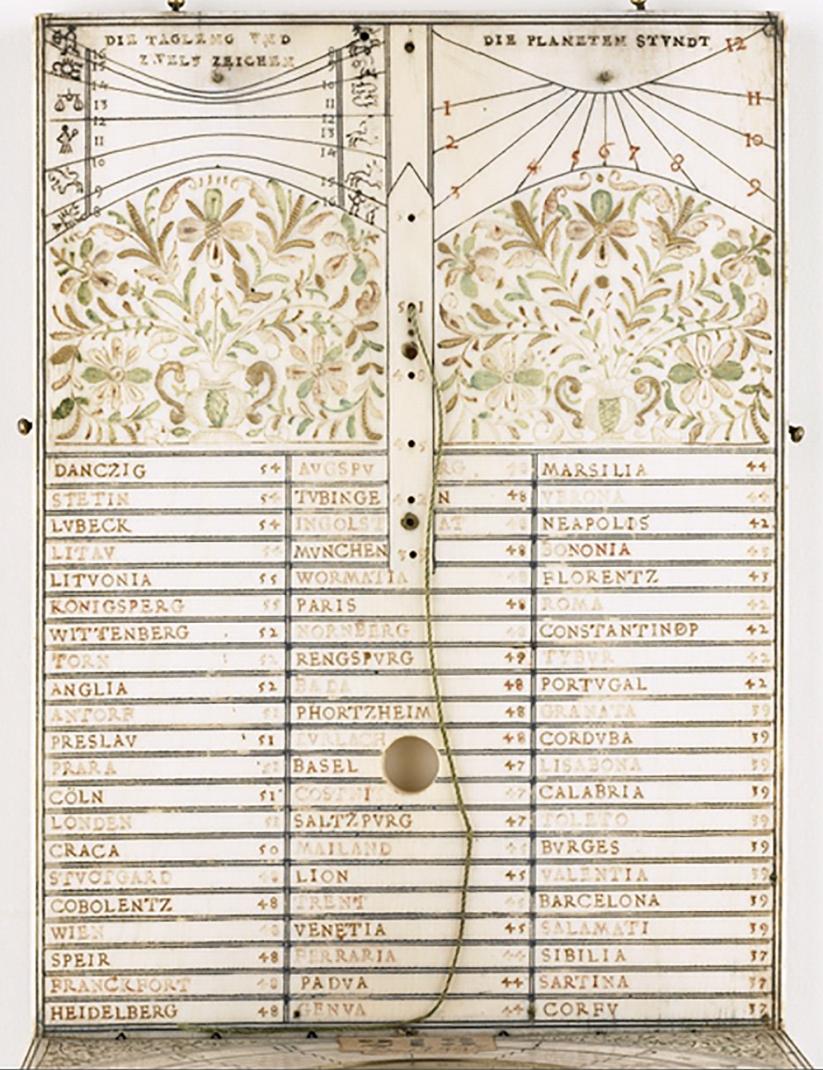 DIE TAGLENG VND
ZWELF ZEICHEN
DIE PLANETEN STVNDT
16
15
14
13
12
11
10
9
8
8
9
10
11
12
13
14
15
16
12
11
10
9
8
7
6
5
4
3
2
1
51
DANCZIG 54
STETIN 54
LVBECK 54
LITAV 54
LITVONIA 55
KÖNIGSPERG 55
WITTENBERG 52
TORN 52
ANGLIA 52
ANTORF 51
PRESLAV 51
PRARA 51
CÖLN 51
LONDEN 51
CRACA 50
STVCTGARD 48
COBOLENTZ 48
WIEN 48
SPEIR 48
FRANCKFORT 48
HEIDELBERG 48
AVGSPVRG 48
TVBINGEN 48
INGOLSTAT 48
MVNCHEN 48
WORMATIA 48
PARIS 48
NORNBERG
RENGSPVRG 49
BADA 48
PHORTZHEIM 48
DVRLACH 48
BASEL 47
COSTNI 47
SALTZPVRG 47
MAILAND 45
LION 45
TRENT 45
VENETIA 45
FERRARIA 44
PADVA 44
GENVA 44
MARSILIA 44
VERONA 44
NEAPOLIS 42
BONONIA 43
FLORENTZ 43
ROMA 42
CONSTANTINOP 42
TYBVR 42
PORTVGAL 42
GRANATA 39
CORDVBA 39
LISABONA 39
CALABRIA 39
TOLETO 39
BVRGES 39
VALENTIA 39
BARCELONA 39
SALAMATI 39
SIBILIA 37
SARTINA 37
CORFV 37